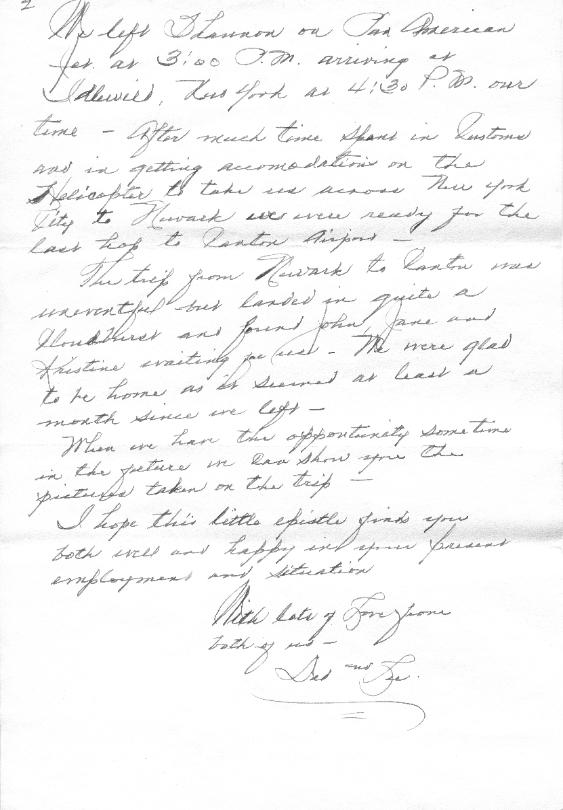 We left Shannon on Pan American
Jet at 3:00 P.M. arriving at
Idlewild, New York at 4:30 P.M. our
time - After much time spent in Customs
and in getting accomodation on the
Helicopter to take us across New York
City to Newark we were ready for the
last hop to Canton Airport -
The trip from Newark to Canton was
uneventful but landed in quite a
Cloudburst and found John, Jane and
Kristine waiting for us - We were glad
to be home as it seemed at least a
month since we left -
When we have the opportunity sometime
in the future we can show you the
pictures taken on the trip -
I hope this little epistle finds you
both well and happy in your present
employment and situation
With lots of Love from
both of us -
Dad and